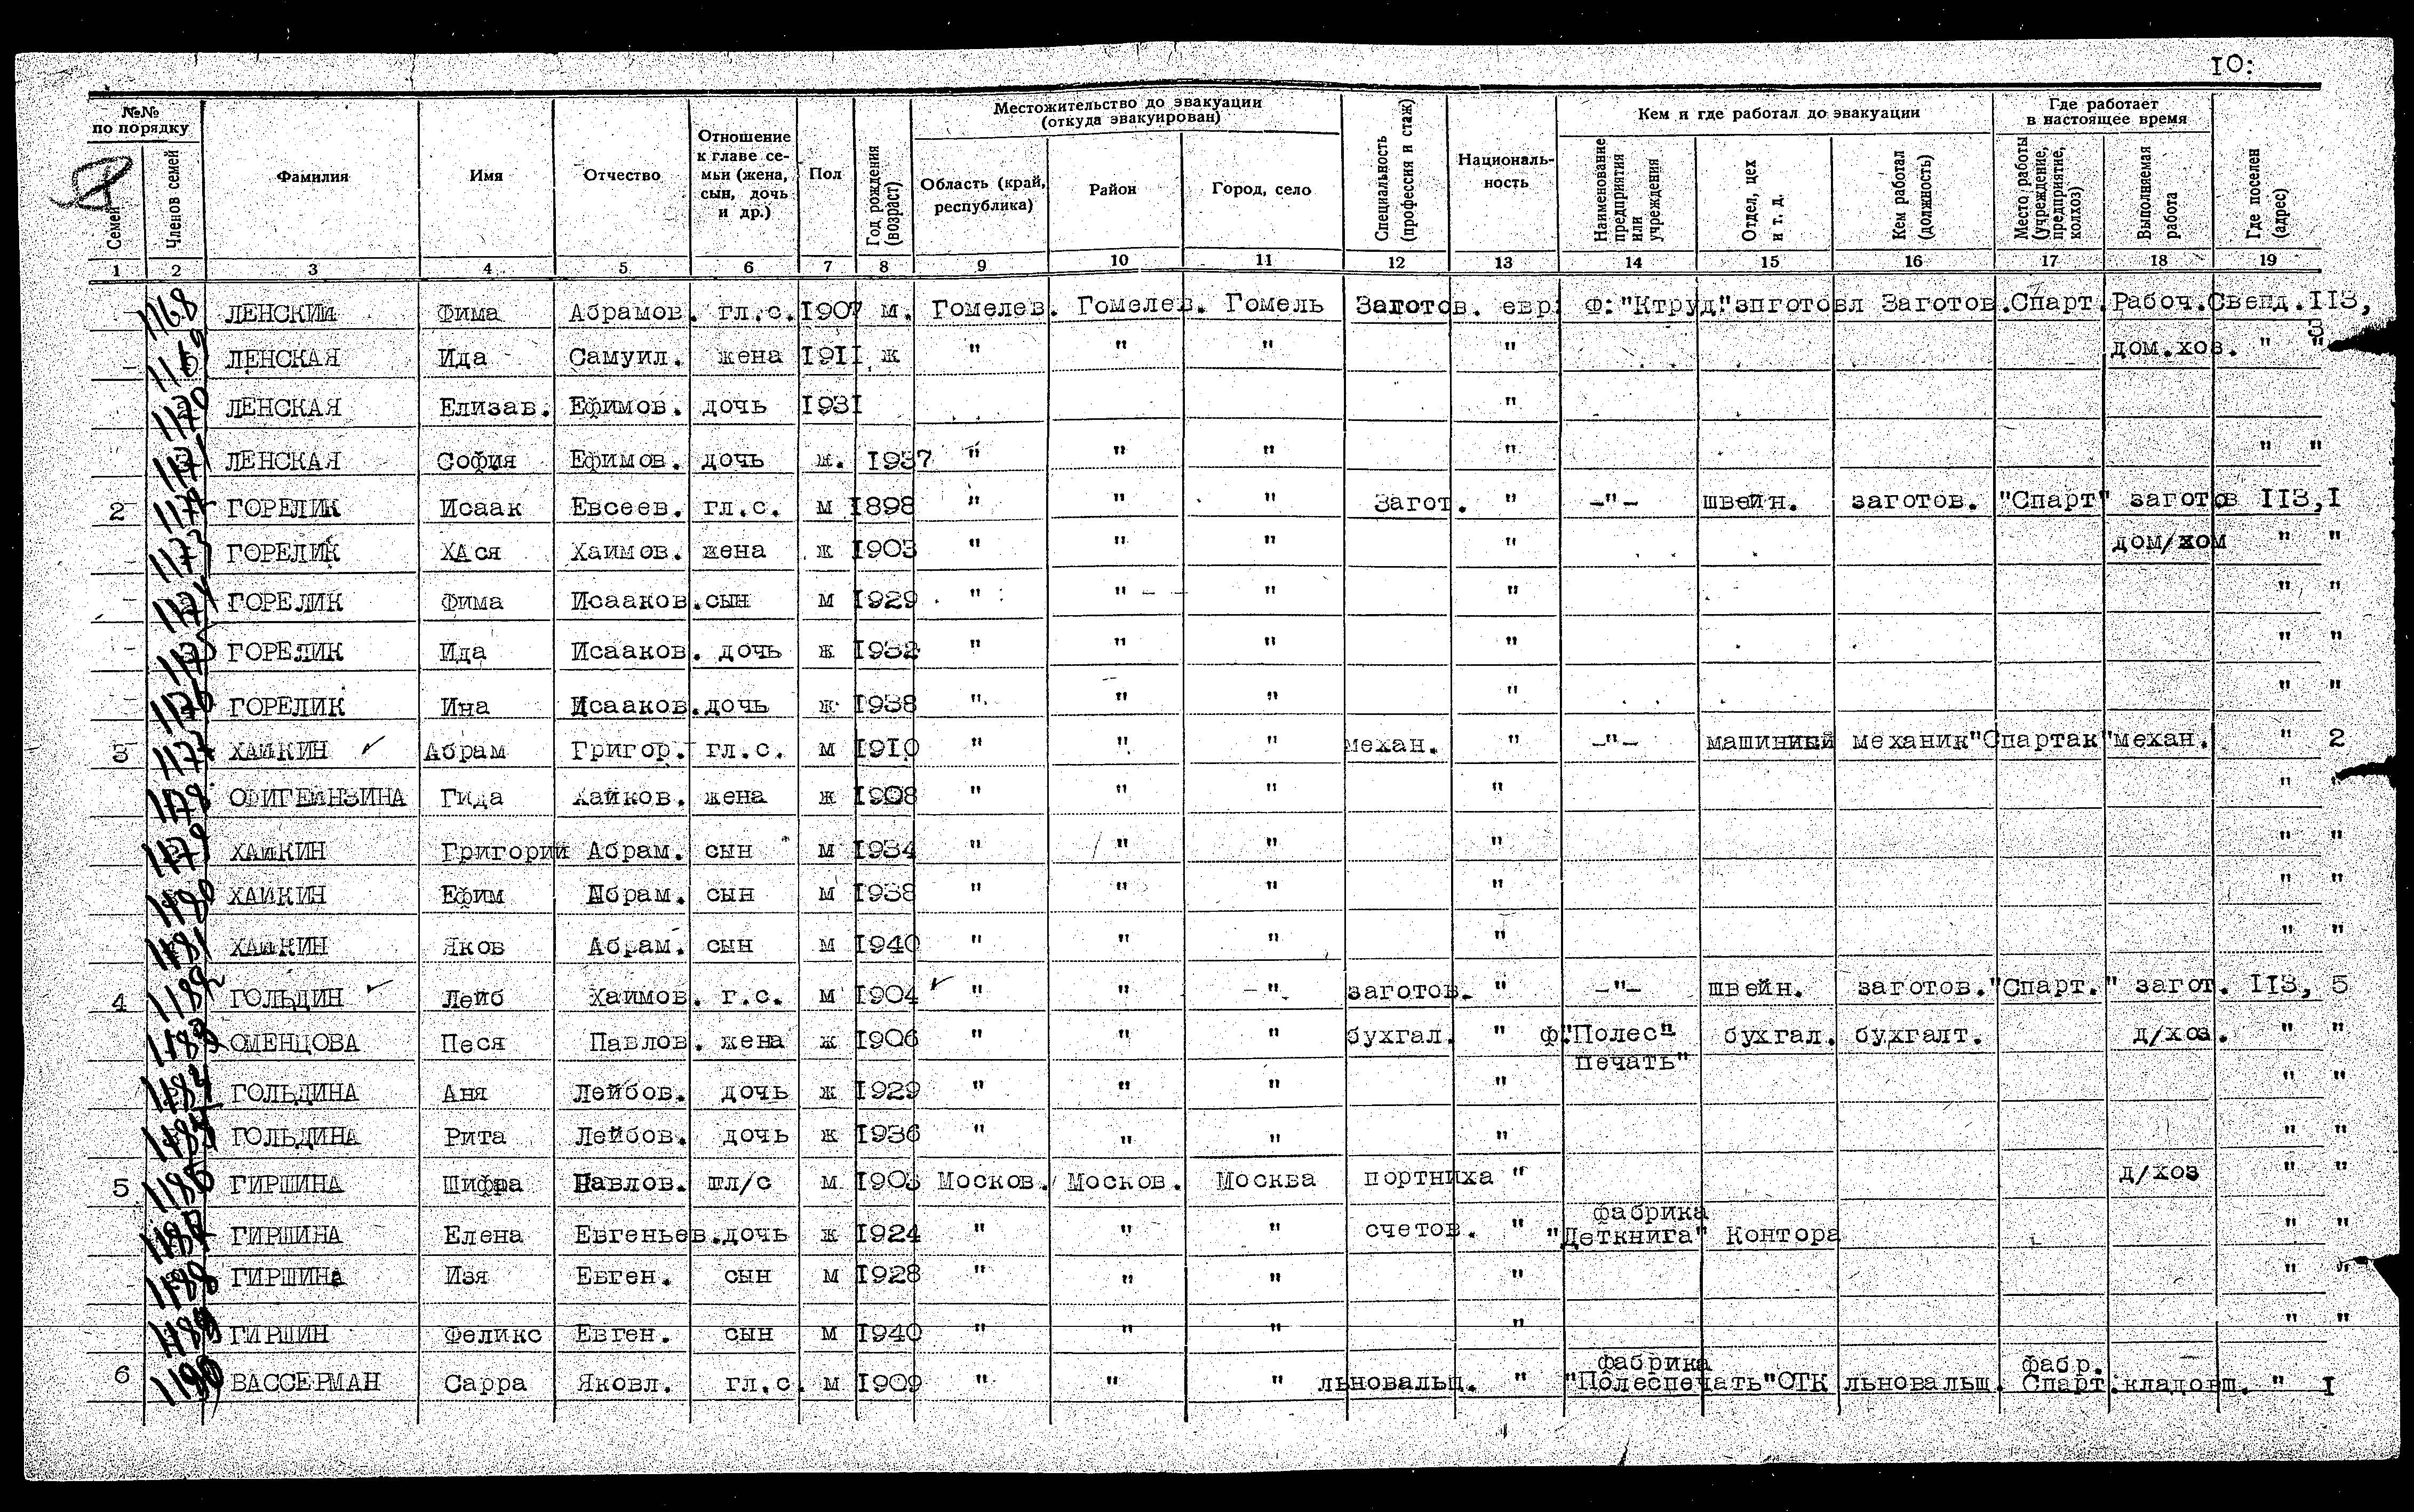 10:
№№ по порядку
Семей
Членов семей
Фамилия
Имя
Отчество
Отношение к главе се- мьи (жена, сын, дочь и др.)
Пол
Год рождения (возраст)
Местожительство до эвакуации (откуда эвакуирован)
Область (край, республика)
Район
Город, село
Специальность (профессия и стаж)
Националь- ность
Кем и где работал до эвакуации
Наименование предприятия или учреждения
Отдел, цех и т. д.
Кем работал (должность)
Где работает в настоящее время
Место работы (учреждение, предприятие, колхоз)
Выполняемая работа
Где поселен (адрес)
1 2 3 4 5 6 7 8 9 10 11 12 13 14 15 16 17 18 19
1168 ЛЕНСКИЙ Фима Абрамов. гл.с. 1907 м. Гомелев. Гомелев. Гомель Заготов. евр. Ф."Ктруд." зпготовл Заготов. Спарт. Рабоч. Свепд.113,
3
1169 ЛЕНСКАЯ Ида Самуил. жена 1911 ж " " " " дом.хоз. " "
1170 ЛЕНСКАЯ Елизав. Ефимов. дочь 1931 "
1171 ЛЕНСКАЯ София Ефимов. дочь ж. 1937 " " " " " "
2 1172 ГОРЕЛИК Исаак Евсеев. гл.с. м 1898 " " " Загот. " -"- швейн. заготов. "Спарт" заготов 113,1
1173 ГОРЕЛИК ХАся Хаимов. жена ж 1903 " " " " дом/хом " "
1174 ГОРЕЛИК Фима Исааков. сын м 1929 " " " " " "
1175 ГОРЕЛИК Ида Исааков. дочь ж 1932 " " " " " "
1176 ГОРЕЛИК Ина Исааков. дочь ж 1938 " " " " " "
3 1177 ХАЙКИН Абрам Григор. гл.с. м 1910 " " " механ. " -"- машинный механик "Спартак" механ. " 2
1178 Гида Хайков. жена ж 1908 " " " " " "
1179 ХАЙКИН Григорий Абрам. сын м 1934 " " " " " "
1180 ХАЙКИН Ефим Абрам. сын м 1938 " " " " " "
1181 ХАЙКИН Яков Абрам. сын м 1940 " " " " " "
4 1182 ГОЛЬДИН Лейб Хаимов. г.с. м 1904 " " -" заготов. " -"- швейн. заготов. "Спарт." загот. 113, 5
1183 ОМЕНЦОВА Песя Павлов. жена ж 1906 " " " бухгал. " ф."Полес" бухгал. бухгалт. д/хоз. " "
печать"
1184 ГОЛЬДИНА Аня Лейбов. дочь ж 1929 " " " " " "
1185 ГОЛЬДИНА Рита Лейбов. дочь ж 1936 " " " " " "
5 1186 ГИРШИНА Шифра Павлов. гл/с м 1903 Москов. Москов. Москва портниха " д/хоз " "
фабрика
1187 ГИРШИНА Елена Евгеньев. дочь ж 1924 " " " счетов. " "Деткнига" Контора " "
1188 ГИРШИНа Изя Евген. сын м 1928 " " " " " "
1189 ГИРШИН Феликс Евген. сын м 1940 " " " " " "
фабрика фабр.
6 1190 ВАССЕРМАН Сарра Яковл. гл.с. м 1909 " " " льновальщ. " "Полеспечать" ОТК льновальщ. Спарт. кладовщ. " 1